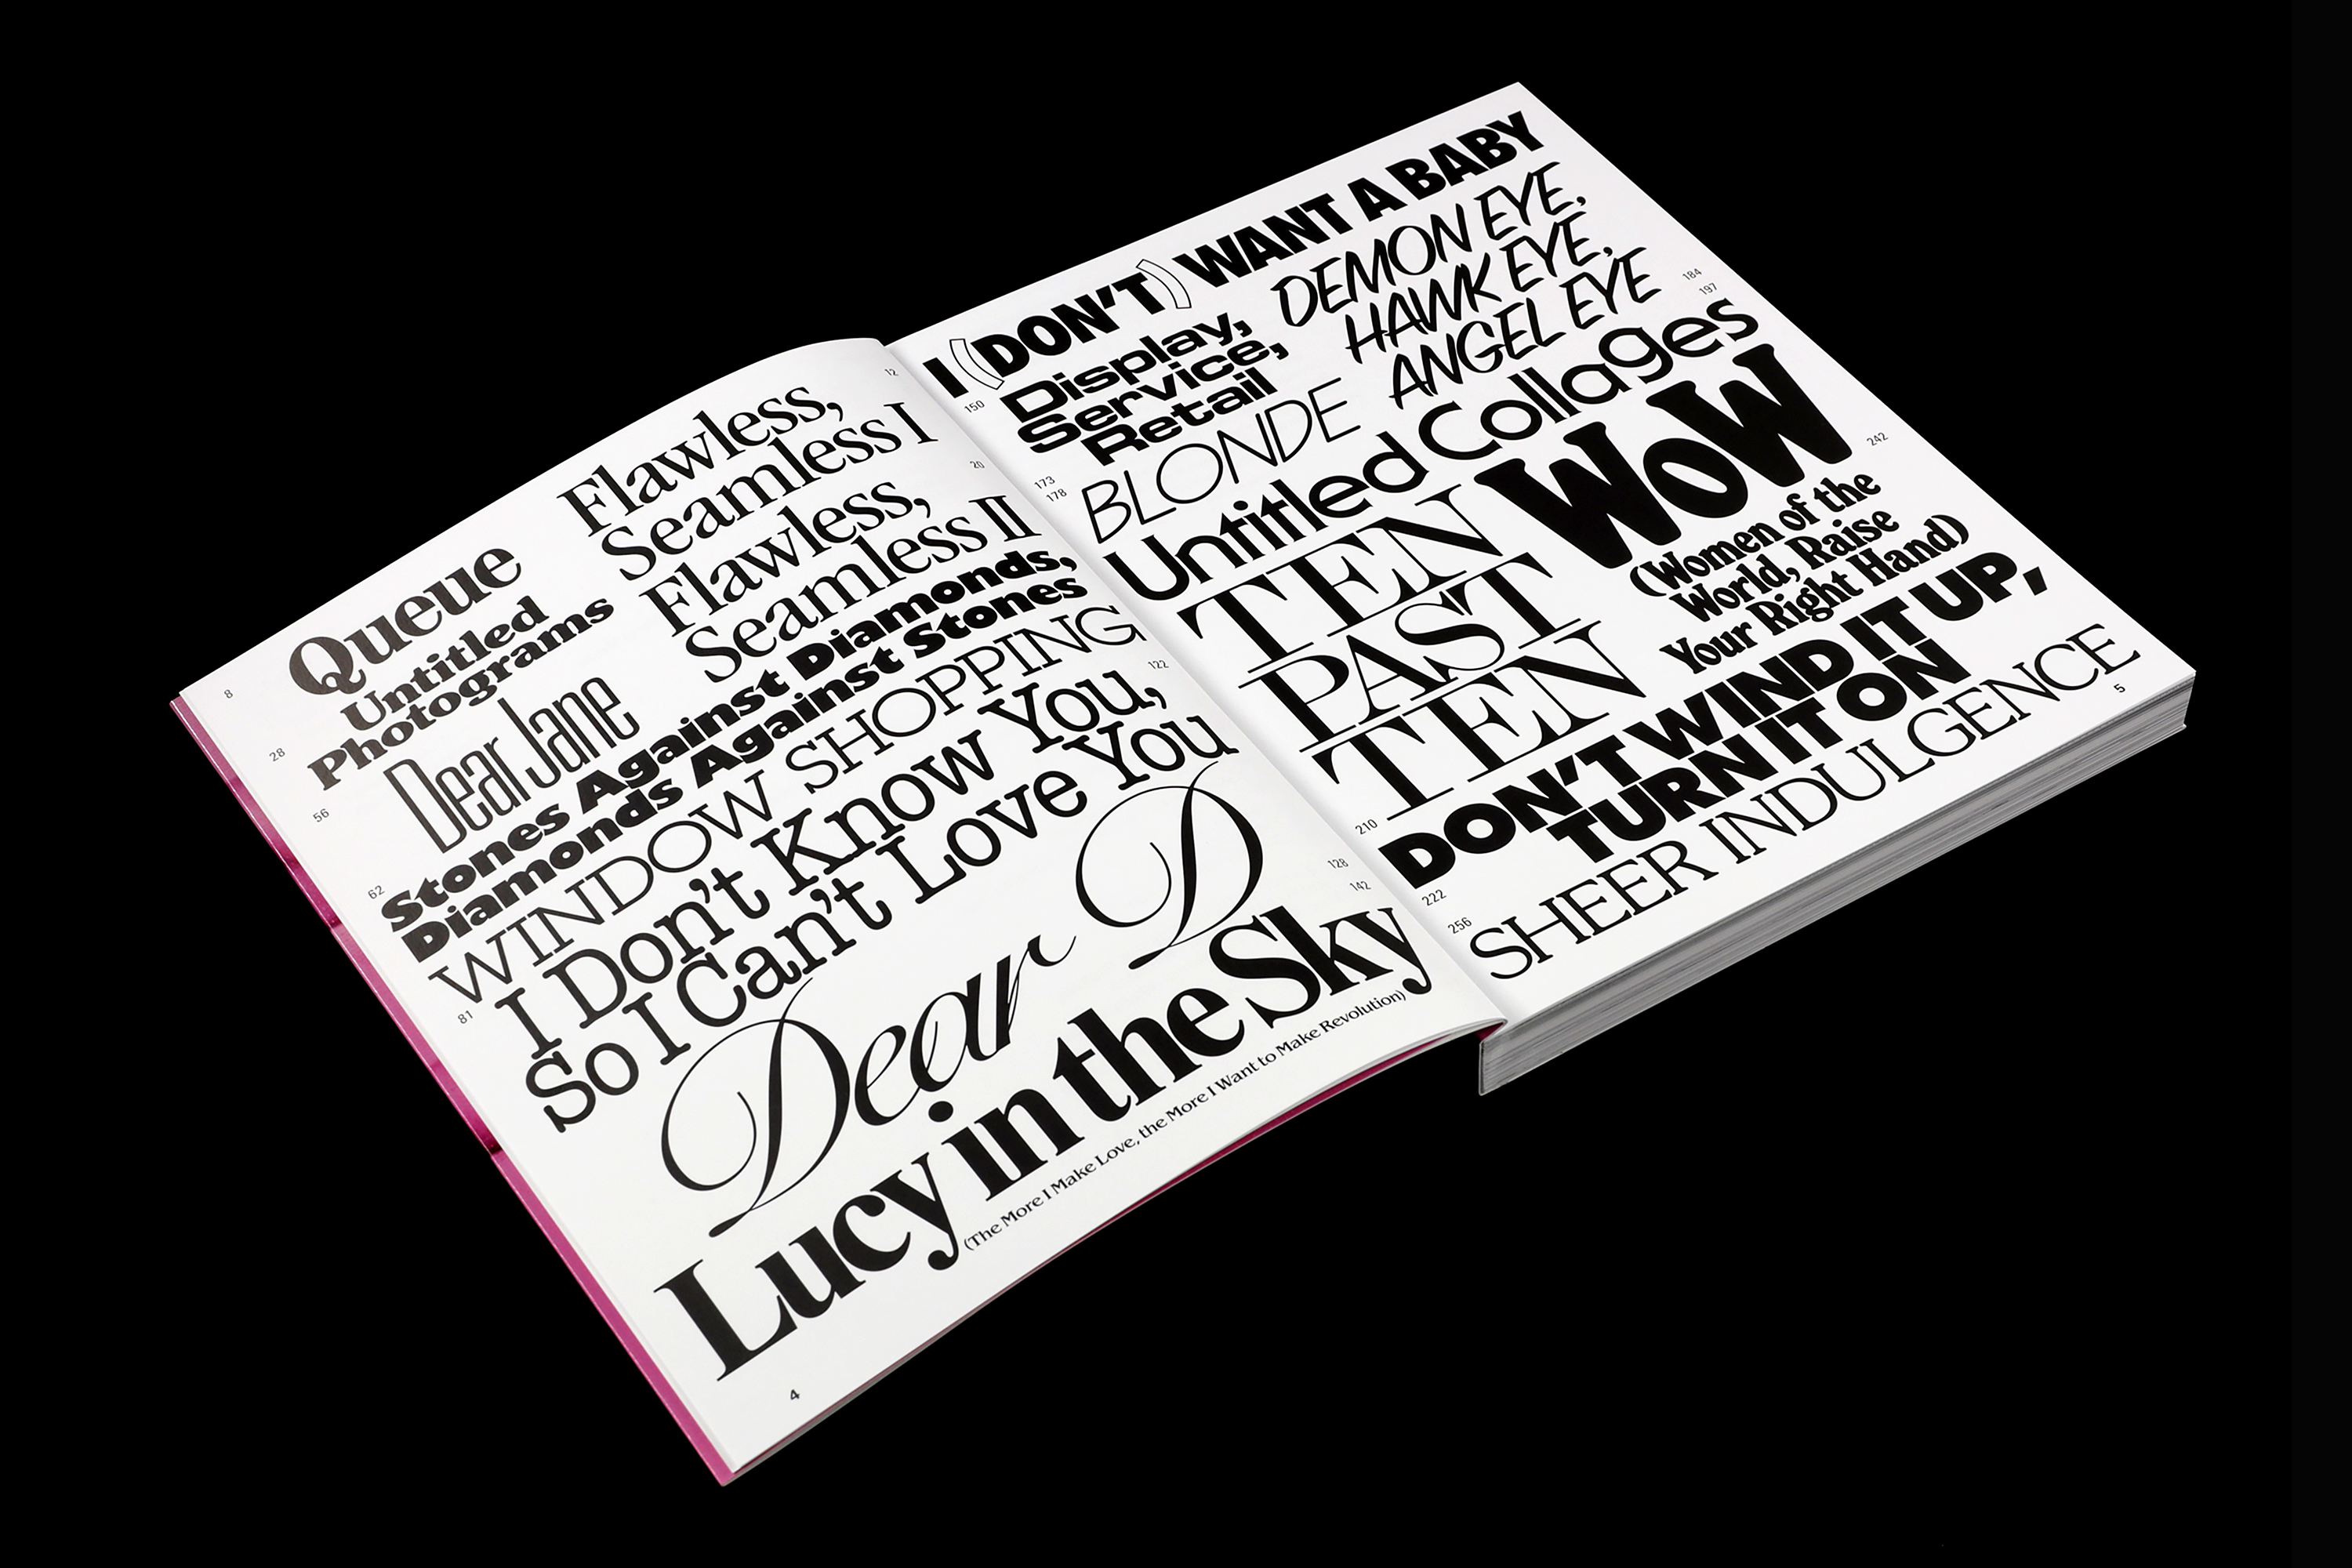 12
Flawless,
Seamless I
8
Queue
20
Flawless,
Seamless II
Untitled
Photographs
28
Dear Jane
56
Stones Against Diamonds,
Diamonds Against Stones
62
WINDOW SHOPPING
122
I Don't Know You,
So I Can't Love You
81
Dear D
128
142
Lucy in the Sky
(The More I Make Love, the More I Want to Make Revolution)
4
I (DON'T) WANT A BABY
150
Display,
Service,
Retail
DEMON EYE,
HAWK EYE,
ANGEL EYE
184
197
173
178
BLONDE
Untitled Collages
TEN
PAST
TEN
WOW
242
(Women of the
World, Raise
Your Right Hand)
210
DON'T WIND IT UP,
TURN IT ON
222
256
SHEER INDULGENCE
5